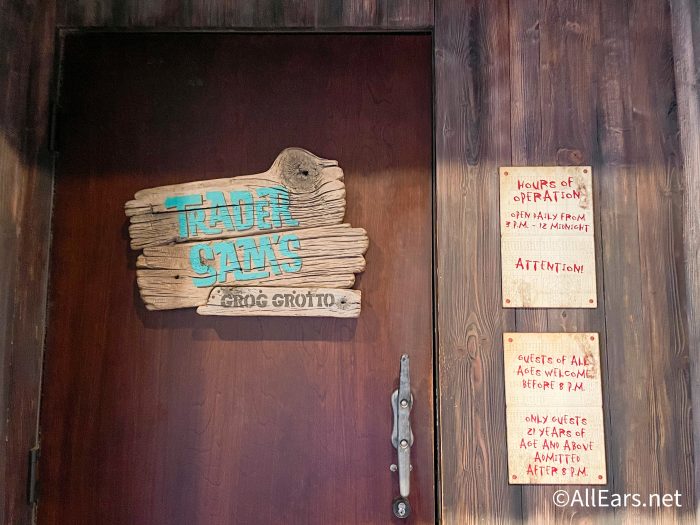 TRADER
SAM'S
GROG GROTTO
HOURS OF
OPERATION
OPEN DAILY FROM
3 P.M. - 12 MIDNIGHT
ATTENTION!
GUESTS OF ALL
AGES WELCOME
BEFORE 8 P.M.
ONLY GUESTS
21 YEARS OF
AGE AND ABOVE
ADMITTED
AFTER 8 P.M.
©AllEars.net